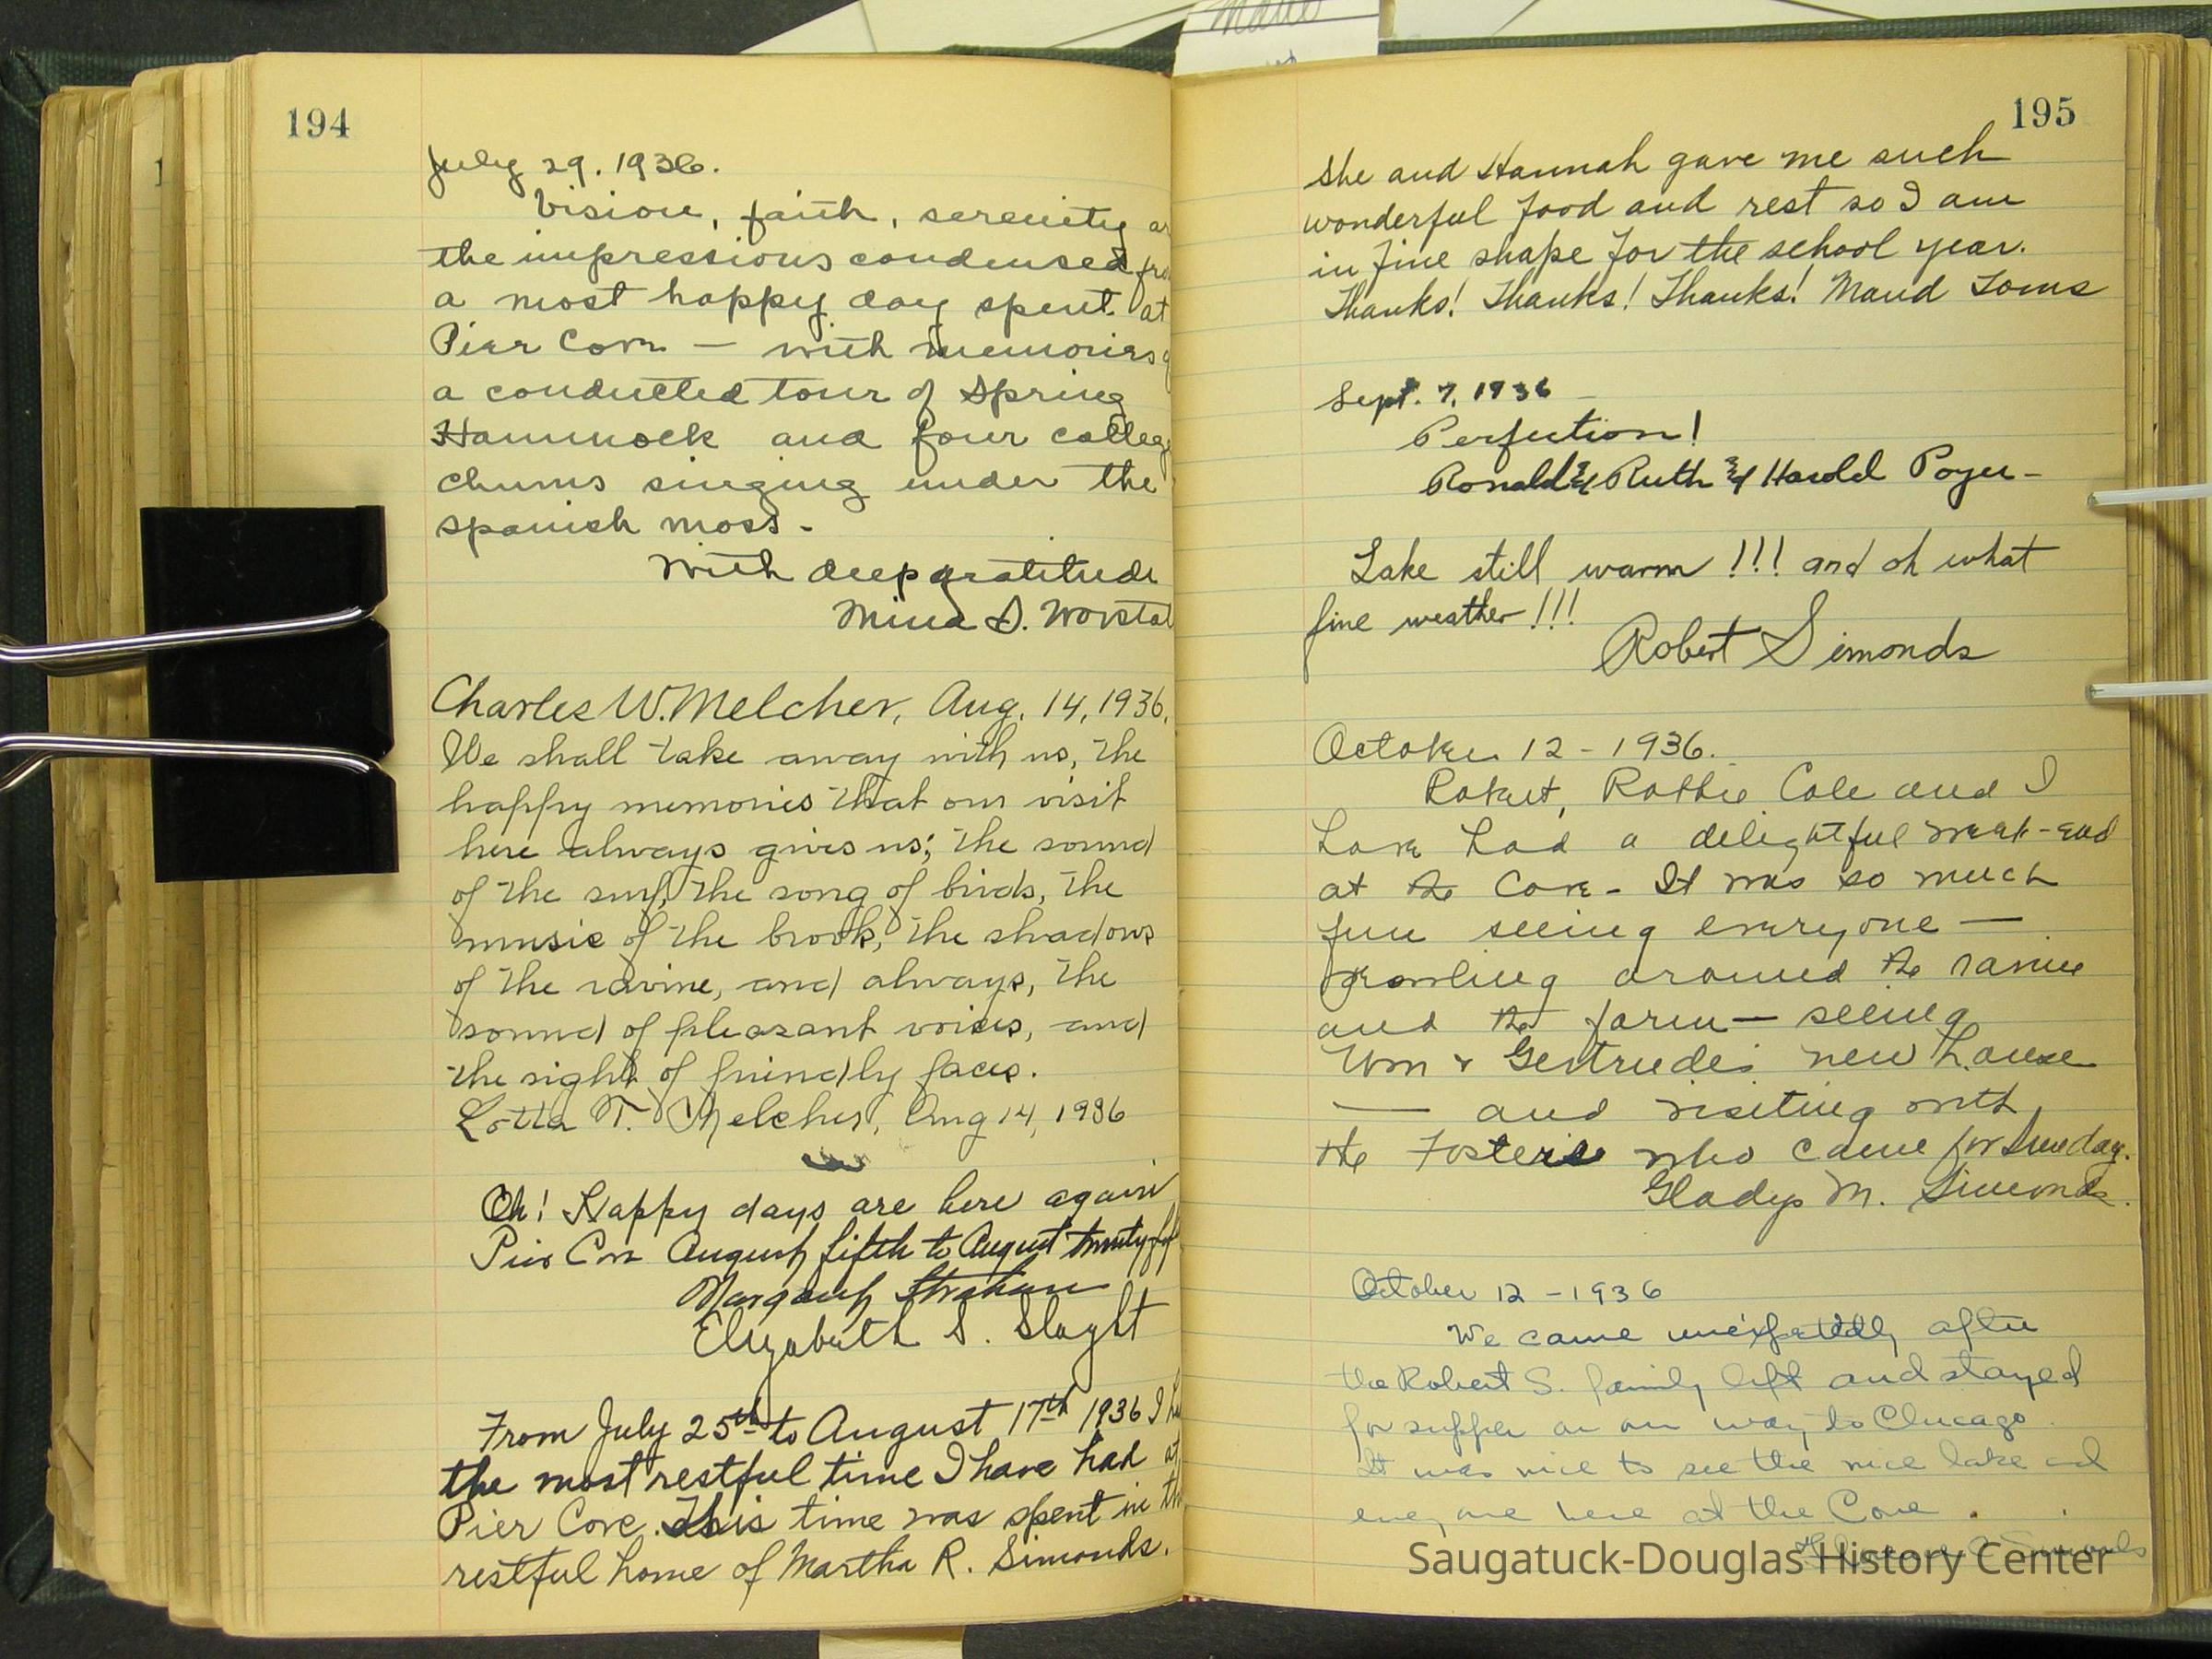 194
July 29. 1936.
Vision, faith, serenity
the impressions condensed
a most happy day spent at
Pier Cove — with memories
a conducted tour of Spring
Hammock and four
chums singing under the
spanish moss -
With deep gratitude
Mina S.
Charles W. Melcher, Aug. 14, 1936.
We shall take away with us, the
happy memories that our visit
here always gives us; the sound
of the surf, the song of birds, the
music of the brook, the shadows
of the ravine, and always, the
sound of pleasant voices, and
the sight of friendly faces.
Lotta T. Melcher, Aug 14, 1936
Oh! Happy days are here again
Pier Cove August fifth to August
Margaret Strahan
Elizabeth S. Slaght
From July 25th to August 17th 1936 I
the most restful time I have had at
Pier Cove. This time was spent in
restful home of Martha R. Simonds.
195
She and Hannah gave me such
wonderful food and rest so I am
in fine shape for the school year.
Thanks! Thanks! Thanks! Maud Toms
Sept. 7, 1936
Perfection!
Ronald & Ruth & Harold Poyer -
Lake still warm !!! and oh what
fine weather !!!
Robert Simonds
October 12 - 1936.
Robert, Robbie Cole and I
have had a delightful week-end
at the Cove - It was so much
fun seeing everyone —
prowling around the ravine
and the farm — seeing
Wm & Gertrude's new house
— and visiting with
the Fosters who came for Sunday.
Gladys M. Simonds.
October 12 - 1936
We came unexpectedly after
the Robert S. family left and stayed
for supper on our way to Chicago.
It was nice to see the nice lake and
everyone here at the Cove.
Simonds
Saugatuck-Douglas History Center